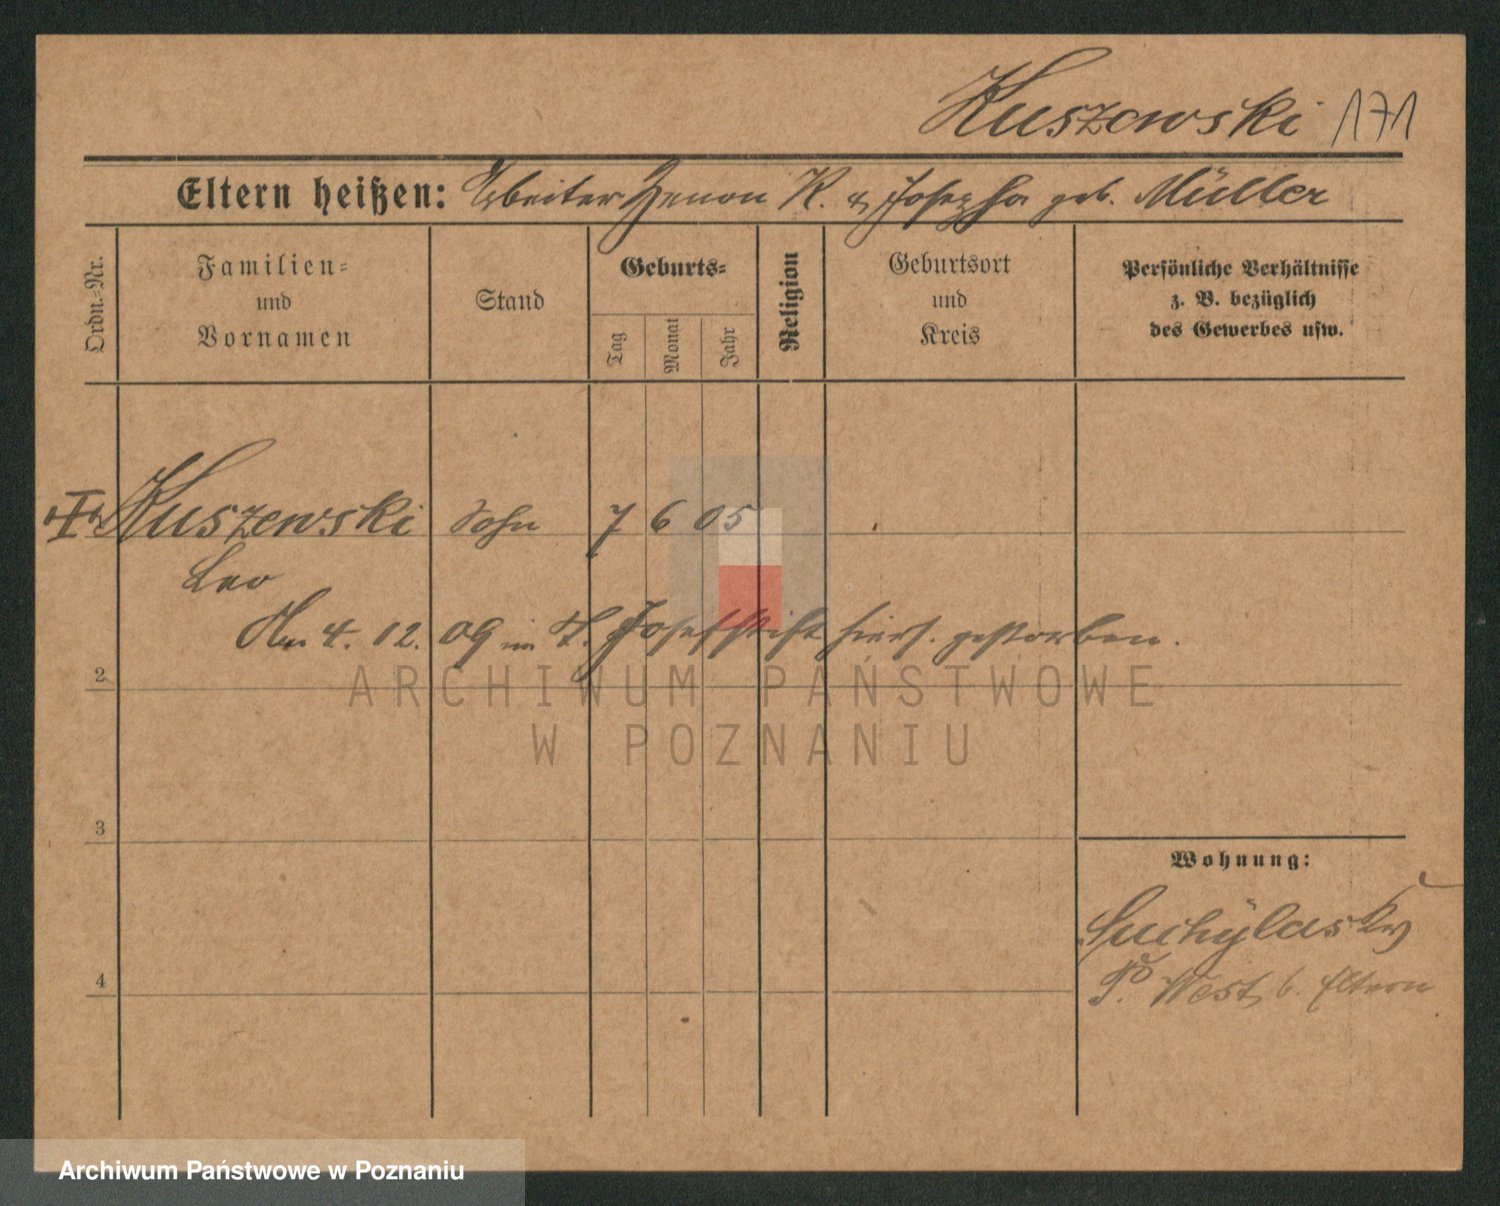 Kuszewski 171
Eltern heißen: Arbeiter Zenon K. u. Josepha geb. Müller
Ordn.-Nr.
Familien-
und
Vornamen
Stand
Geburts-
Tag
Monat
Jahr
Religion
Geburtsort
und
Kreis
Persönliche Verhältnisse
z. B. bezüglich
des Gewerbes usw.
Kuszewski Sohn 7 6 05
Leo
Am 4. 12. 09 im St. Josefstift hiers. gestorben.
2
ARCHIWUM PAŃSTWOWE
W POZNANIU
3
Wohnung:
Suchylas Kr
4
P. West b. Eltern
Archiwum Państwowe w Poznaniu